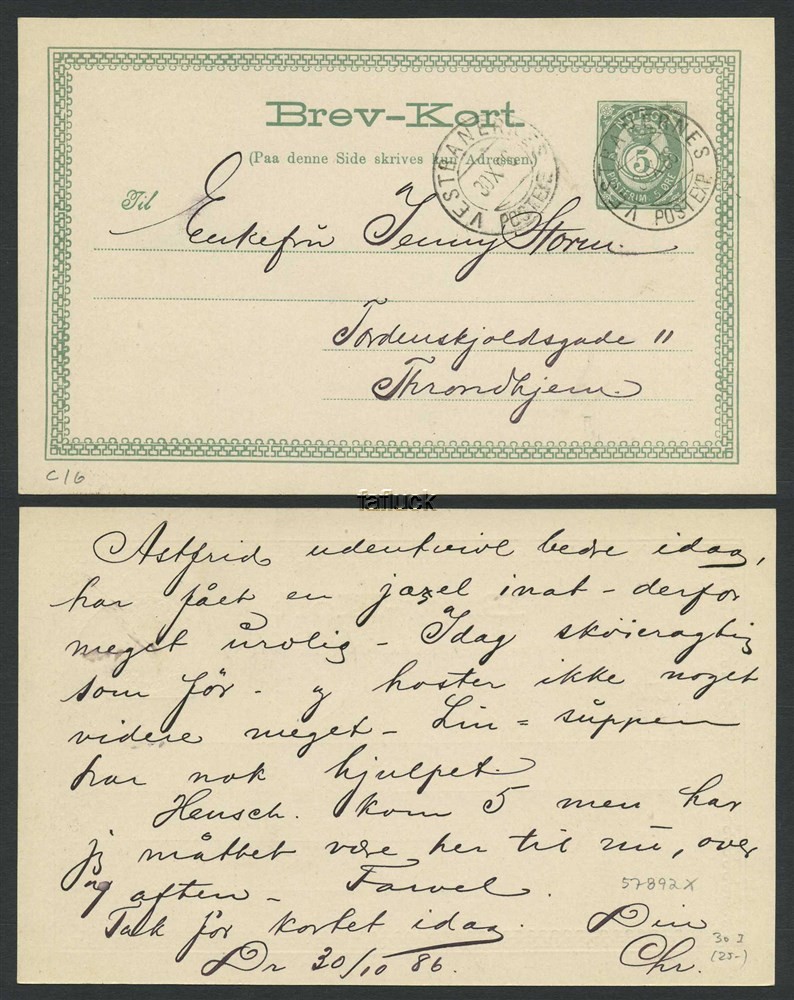 Brev-Kort.
(Paa denne Side skrives kun Adressen.)
NORGE
5
POSTFRIM ØRE
VESTBANERNES
30 X 86
POSTEXP.
VESTBANERNES
POSTEXP.
Til Enkefrü Jenny Storm.
Tordenskjoldsgade 11
Throndhjem.
C16
fafluck
Astfrid udentvivl bedre idag,
har fået en jaxel inat - derfor
meget ürolig - Idag sköieragtig
som för - og hoster ikke noget
videre meget - Lin = süppen
har nok hjulpet.
Heusch. kom 5 men har
jeg måttet være her til nü, over
7 aften - Farvel.
57892X
Tak för kortet idag. Din
Dr 30/10 86. Chr.
30 I
(25-)